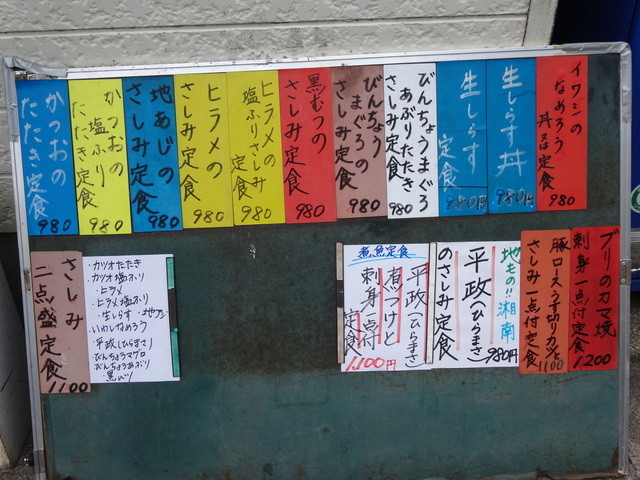 イワシの
なめろう
丼又は定食
980
生しらす丼
980円
生しらす
定食
980円
びんちょうまぐろ
あぶりたたき
さしみ定食
980
びんちょう
まぐろの
さしみ定食
980
黒むつの
さしみ定食
980
ヒラメの
塩ふりさしみ
定食
980
ヒラメの
さしみ定食
980
地あじの
さしみ定食
980
かつおの
塩ふり
たたき定食
980
かつおの
たたき定食
980
ブリのカマ焼
刺身一点付定食
1200
豚ロースうす切りカツと
さしみ一点付定食
1100
地もの!!湘南
平政(ひらまさ)
のさしみ定食
980円
煮魚定食
平政(ひらまさ)
煮つけと
刺身一点付
定食
1,100円
・カツオたたき
・カツオ塩ふり
・ヒラメ
・ヒラメ塩ふり
・生しらす・地アジ
・いわしなめろう
・平政(ひらまさ)
・びんちょうマグロ
・びんちょうあぶり
・黒ムツ
さしみ
二点盛定食
1100